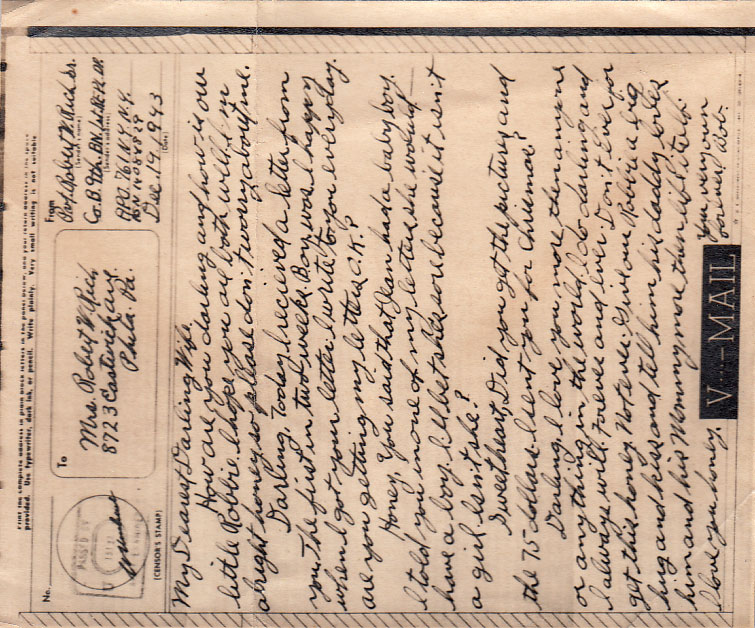 Print the complete address in plain block letters in the panel below, and your return address in the space
provided. Use typewriter, dark ink, or pencil. Write plainly. Very small writing is not suitable
No.
(CENSOR'S STAMP)
To
Mrs. Robert W. Rich,
8723 Castwick ave.
Phila. Pa.
From
Robert W. Rich Sr.
(Sender's name)
(Sender's address)
A.P.O. 761 N.Y. N.Y.
Dec. 19, 943
(Date)
My Dearest Darling Wife,
How are you darling and how is our
little Robbie. I hope you are both well. I'm
alright honey so please don't worry about me.
Darling, Today I recieved a letter from
you. The first in two weeks. Boy was I happy
when I got your letter. I write to you everyday.
are you getting my letters O.K.?
Honey, You said that Jean had a baby boy.
I told you in one of my letters she would
have a boy. I'll bet she's sore because it isn't
a girl. Isn't she?
Sweetheart, Did you get the pictures and
the 75 dollars I sent you for Christmas?
Darling, I love you more then anyone
or anything in the world. I do darling and
I always will. Forever and ever. Don't ever for
get this honey. Not ever. Give our Robbie a big
hug and kiss and tell him his daddy loves
him and his Mommy more then life itself.
I love you honey. Your very own
forever, Bob.
V···—MAIL